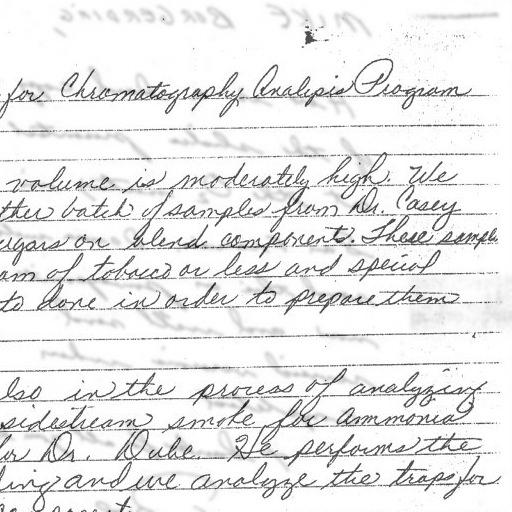 MIKE BORGERDING,
for Chromatography Analysis Program
volume is moderately high. We
ther batch of samples from Dr. Casey
ugars on blend components. These samples
am of tobacco or less and special
to done in order to prepare them
lso in the process of analyzing
sidestream smoke for ammonia
for Dr. Dube. He performs the
ling and we analyze the traps for